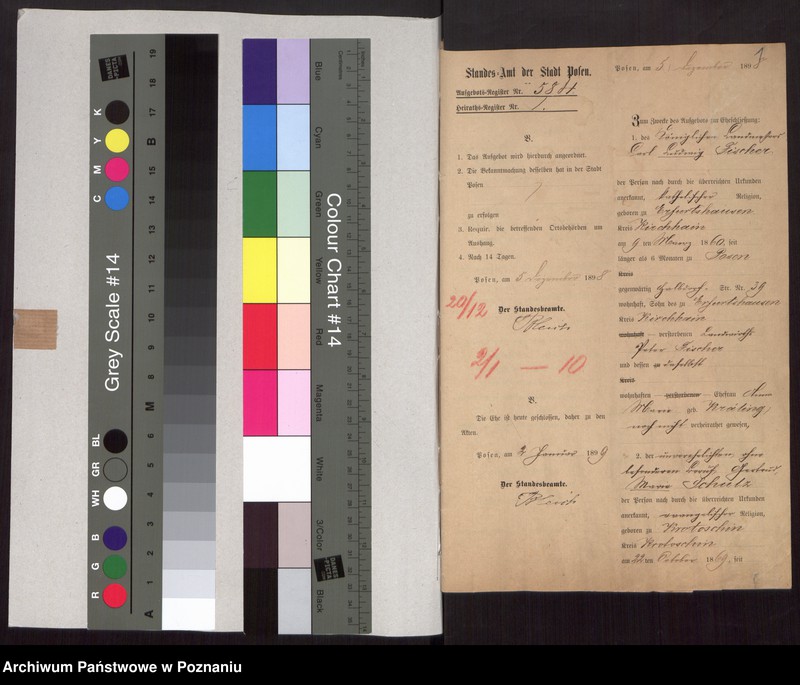 Grey Scale #14
C M Y K
R G B WH GR BL
A 1 2 3 4 5 6 M 8 9 10 11 12 13 14 15 B 17 18 19
DANES
PICTA
Colour Chart #14
Blue
Cyan
Green
Yellow
Red
Magenta
White
3/Color
Black
Centimetres
Inches
DANES
PICTA
Standes-Amt der Stadt Posen.
Aufgebots-Register Nr.
Heiraths-Register Nr. 1.
V.
1. Das Aufgebot wird hierdurch angeordnet.
2. Die Bekanntmachung desselben hat in der Stadt
Posen
zu erfolgen
3. Requir. die betreffenden Ortsbehörden um
Aushang.
4. Nach 14 Tagen.
Posen, am 5. Dezember 1898
Der Standesbeamte.
20/12
2/1 — 10
V.
Die Ehe ist heute geschlossen, daher zu den
Akten.
Posen, am 2 Januar 1899
Der Standesbeamte.
1
Posen, am 5. Dezember 1898
Zum Zwecke des Aufgebots zur Eheschließung:
1. des Königlichen
Carl Ludwig Fischer
der Person nach durch die überreichten Urkunden
anerkannt, katholischer Religion,
geboren zu Erfurtshausen
Kreis Kirchhain
am 9 ten März 1860, seit
länger als 6 Monaten zu Posen
Kreis
gegenwärtig Str. Nr. 39
wohnhaft, Sohn des zu Erfurtshausen
Kreis Kirchhain
verstorbenen Landwirths
Peter Fischer
und dessen daselbst
Kreis
wohnhaften verstorbenen Ehefrau Anna
Maria geb.
noch nicht verheirathet gewesen,
2. der unverehelichten ohne
besonderen Beruf, Gertrud
Maria Schulz
der Person nach durch die überreichten Urkunden
anerkannt, evangelischer Religion,
geboren zu Krotoschin
Kreis Krotoschin
am 22 ten October 1869, seit
Archiwum Państwowe w Poznaniu